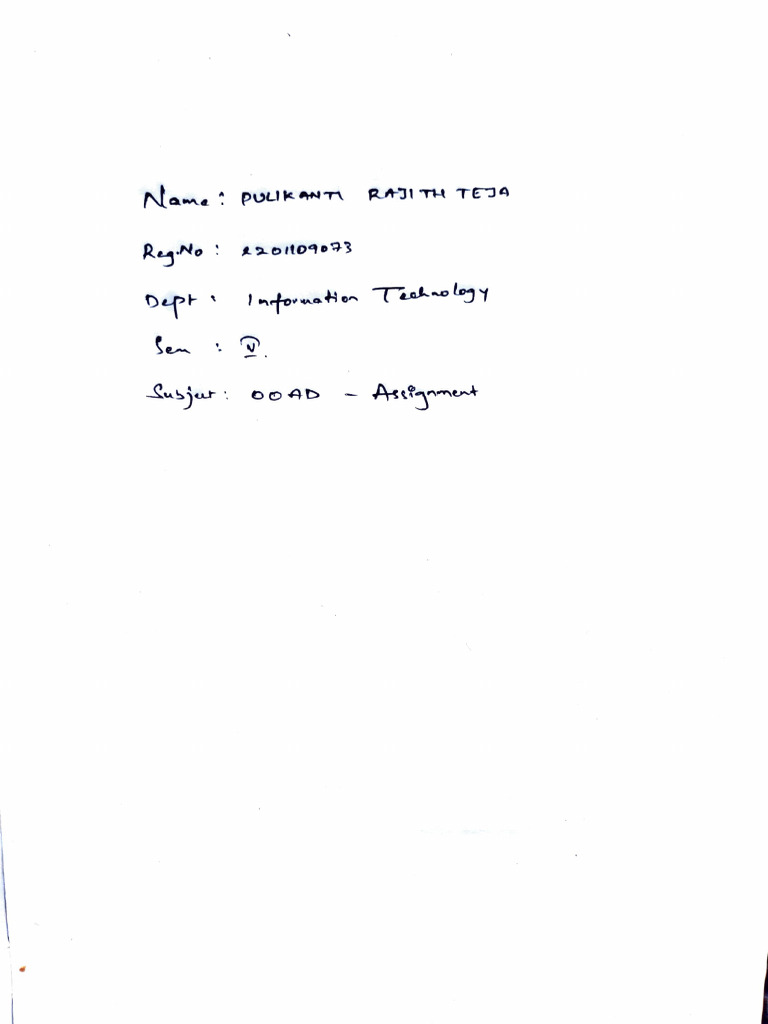 Name : PULIKANTI RAJITH TEJA
Reg.No : 2201109073
Dept : Information Technology
Sem : V.
Subject : OOAD - Assignment